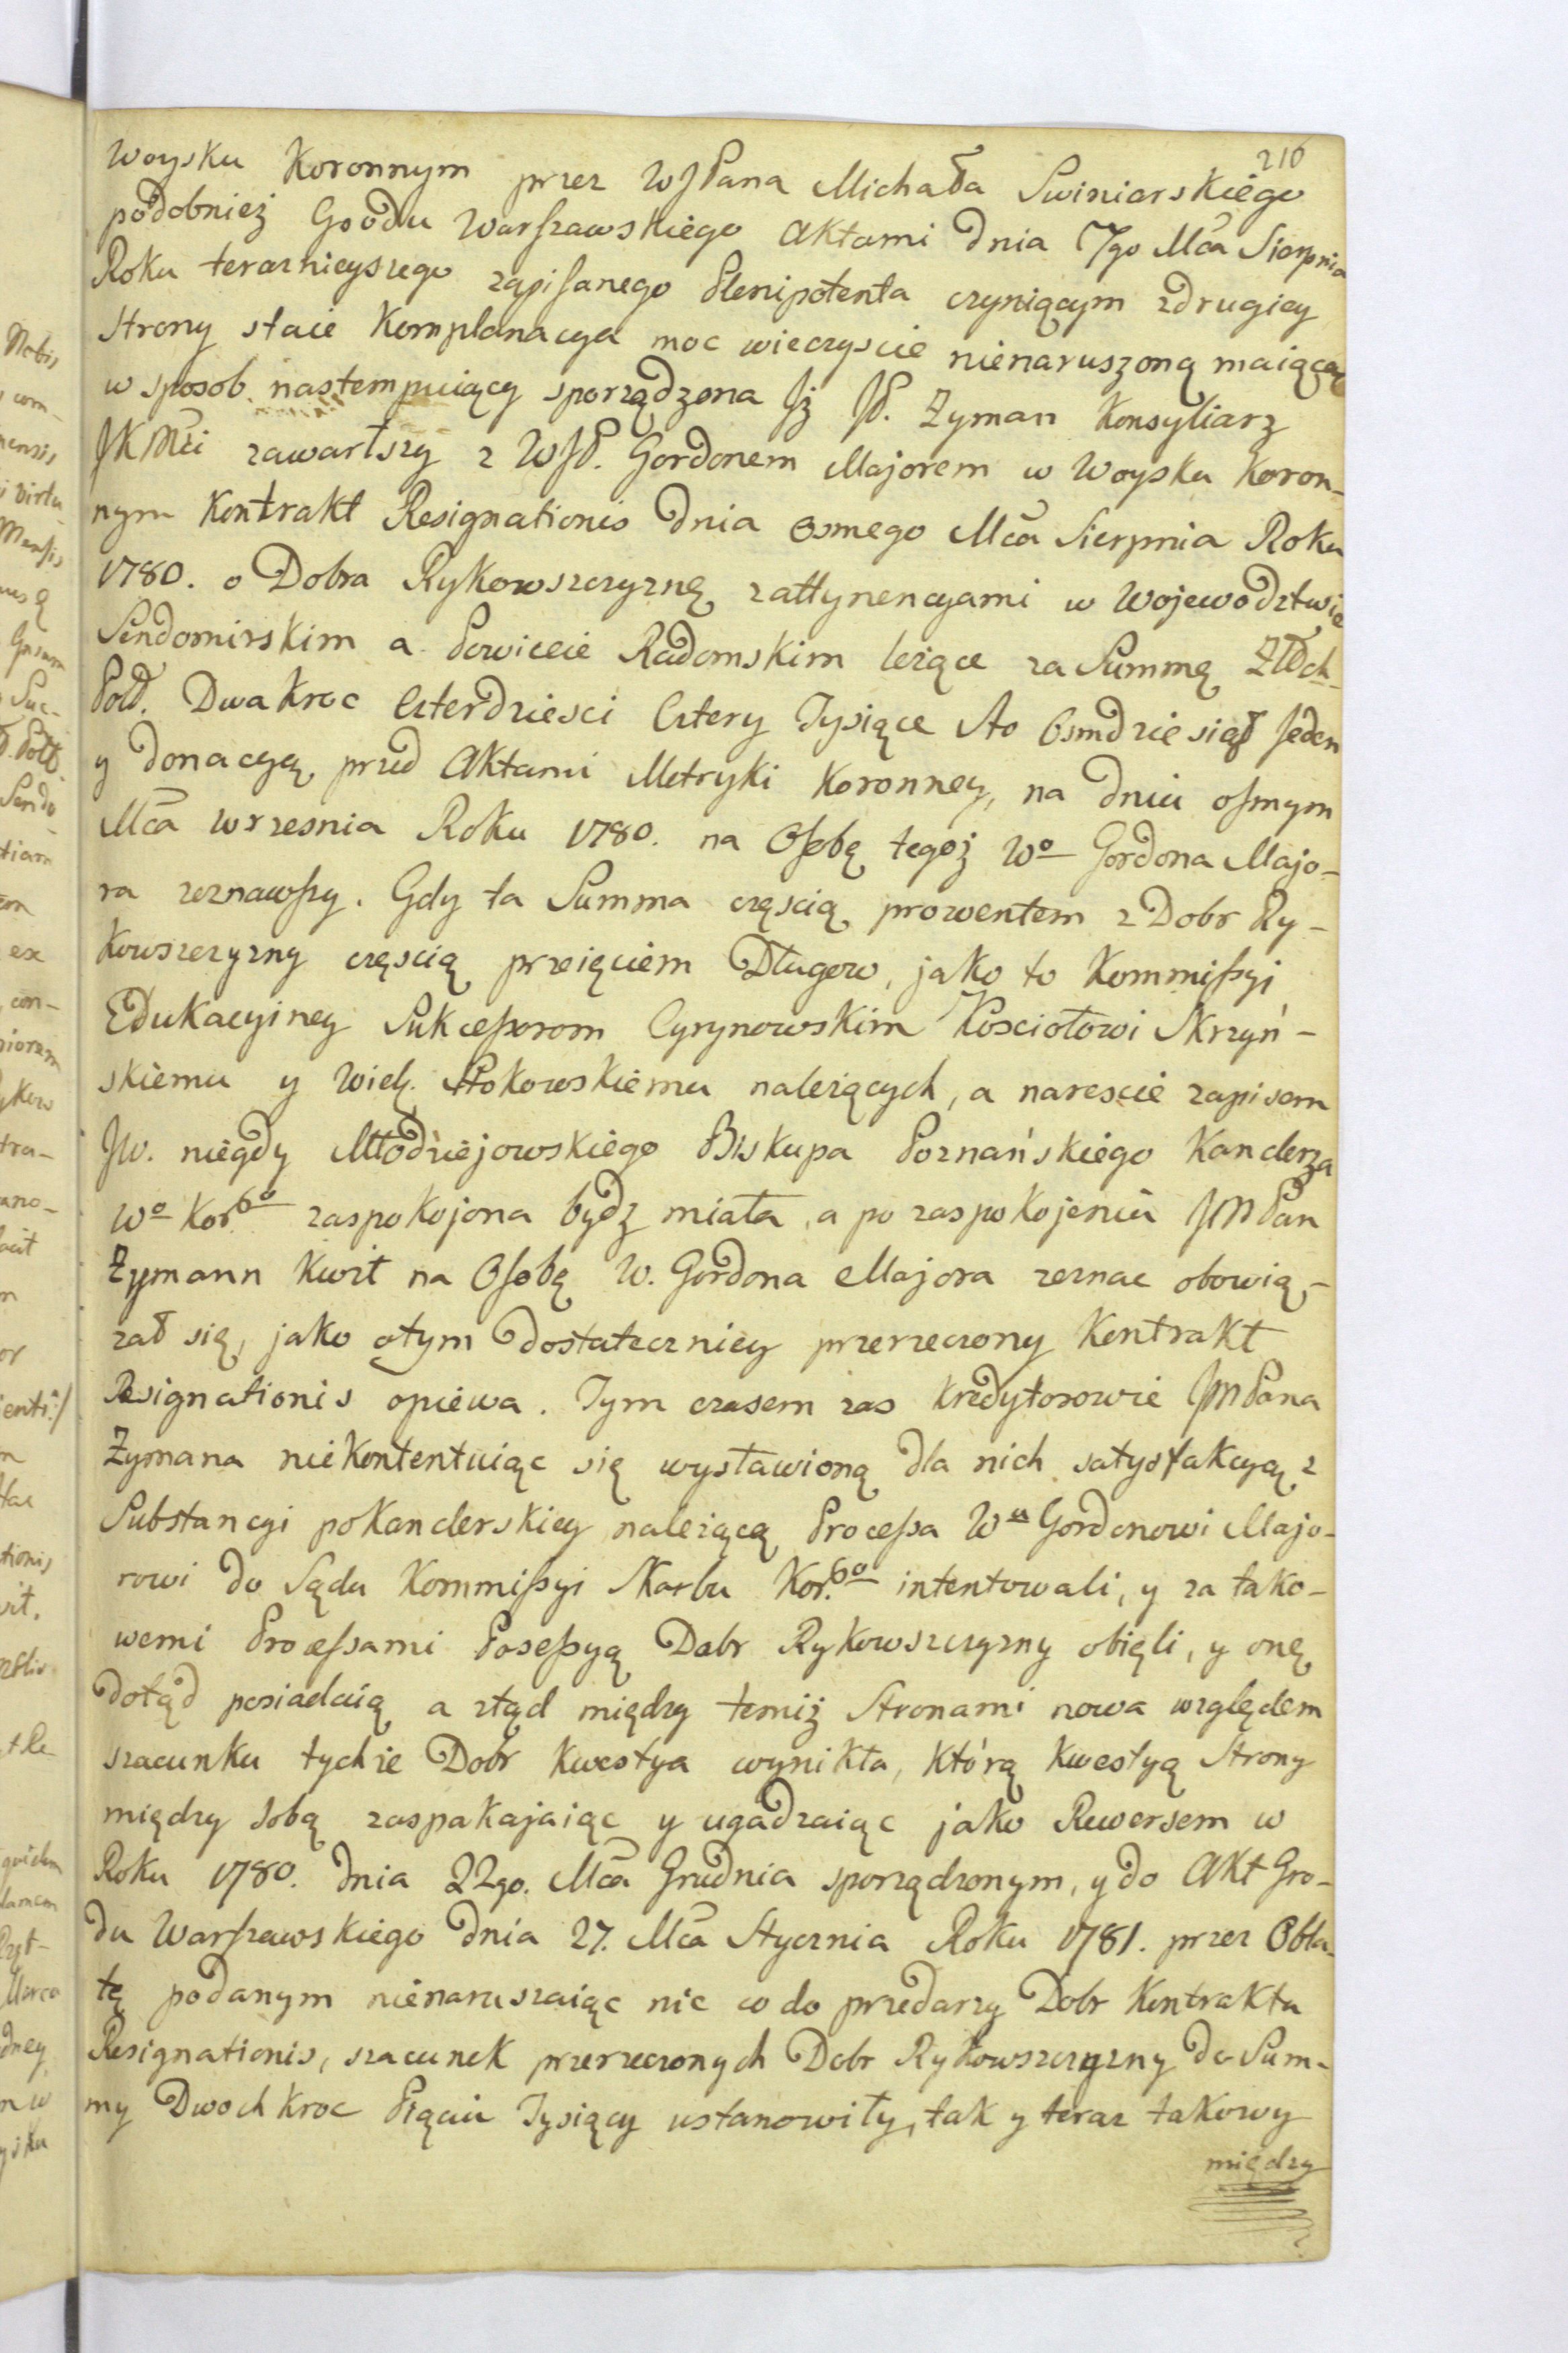 216
Woysku Koronnym przez WJPana Michała Swiniarskiego
podobnież Grodu Warszawskiego Aktami dnia 17go Mca Sierpnia
Roku teraznieyszego zapisanego Plenipotenta czyniącym zdrugiey
Strony staie Komplanacya moc wieczyscie nienaruszoną maiącą
w sposob nastempuiący sporządzona Jż JP. Zyman Konsyliarz
JKMci zawartszy z WJP. Gordonem Majorem w Woysku Koron-
nym Kontrakt Resignationis dnia osmego Mca Sierpnia Roku
1780. o Dobra Rykowszczyznę zattynencyami w Wojewodztwie
Sendomirskim a Powiecie Radomskim leżące za Summę Złłch
Poll. Dwa kroc Czterdziesci Cztery Tysiące Sto Osmdziesiąt Jeden
y donacyą przed Aktami Metryki Koronney, na dniu osmym
Mca wrzesnia Roku 1780. na Osobę tegoż Wo Gordona Majo-
ra zeznawszy. Gdy ta Summa częscią prowentem z Dobr Ry-
kowszczyzny częscią przeięciem Długow, jako to Kommissyi
Edukacyiney Sukcessorom Cyrynowskim Kosciołowi Skrzyń-
skiemu y Wiel. Stokowskiemu należących, a narescie zapisem
JW. niegdy Młodziejowskiego Biskupa Poznańskiego Kanclerza
Wo Kor.go zaspokojona bydz miała, a po zaspokojeniu JMPan
Zymann Kwit na Osobę W. Gordona Majora zeznac obowią-
zał się, jako otym dostateczniey przerzeczony Kontrakt
Resignationis opiewa. Tym czasem zas Kredytorowie JMPana
Zymana niekontentuiąc się wystawioną dla nich satysfakcyą z
Substancyi poKanclerskiey należącą Processa Wu Gordonowi Majo-
rowi do Sądu Kommissyi Skarbu Kor.go intentowali, y za tako-
wemi Processami Possessyą Dobr Rykowszczyzny obięli, y onę
dotąd posiadaią a ztąd między temiż Stronami nowa względem
szacunku tychże Dobr Kwestya wynikła, którą Kwestyą Strony
między sobą zaspakajaiąc y ugadzaiąc jako Rewersem w
Roku 1780. dnia 22go. Mca Grudnia sporządzonym, y do Akt Gro-
du Warszawskiego dnia 27. Mca Stycznia Roku 1781. przez Obla-
tę podanym nienaruszaiąc nic co do przedarzy Dobr Kontraktu
Resignationis, szacunek przerzeczonych Dobr Rykowszczyzny do Sum-
my Dwoch kroc Pięciu Tysięcy ustanowiły, tak y teraz takowy
między